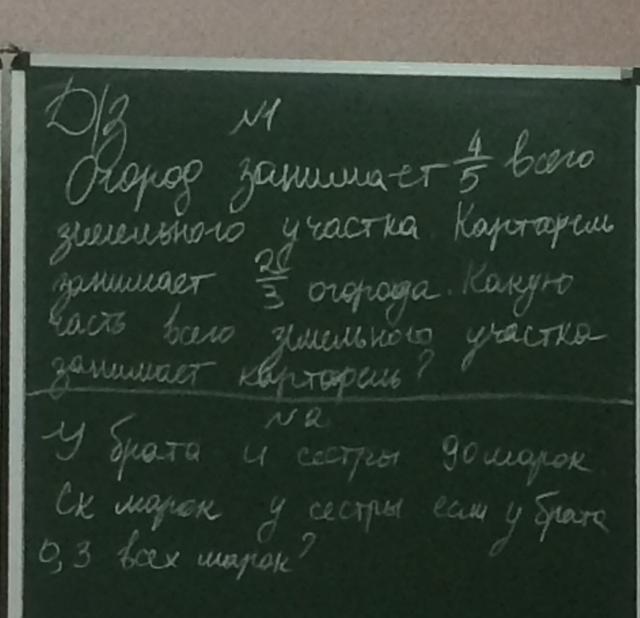 Д/З №1
Огород занимает 4/5 всего
земельного участка. Картофель
занимает 2/3 огорода. Какую
часть всего земельного участка
занимает картофель?
№2
У брата и сестры 90 марок.
Ск марок у сестры если у брата
0,3 всех марок?